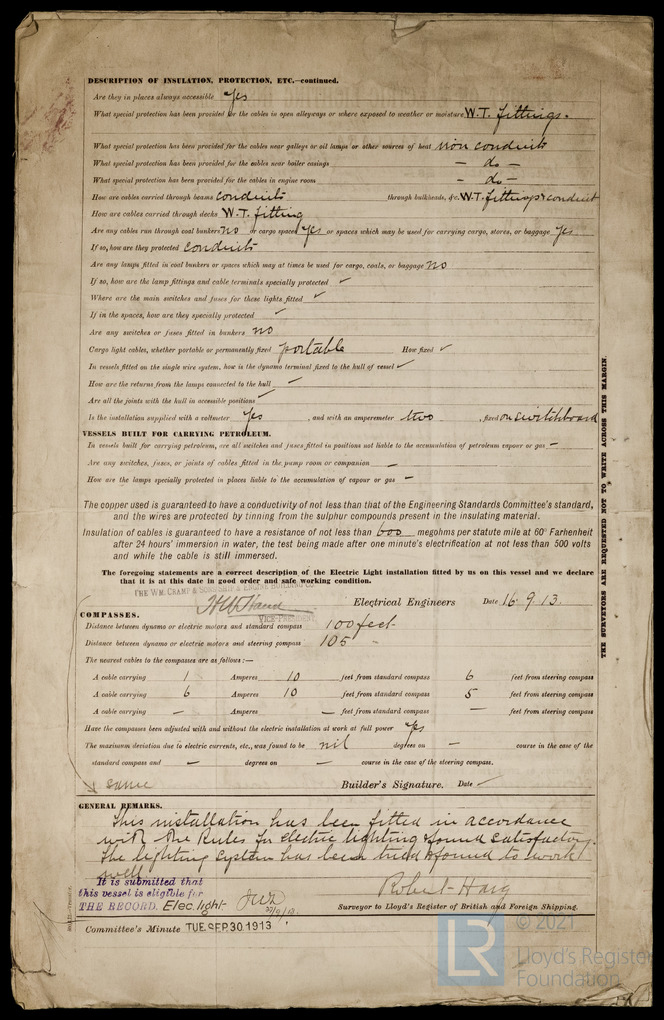 DESCRIPTION OF INSULATION, PROTECTION, ETC.—continued.
Are they in places always accessible Yes
What special protection has been provided for the cables in open alleyways or where exposed to weather or moisture W.T. fittings.
What special protection has been provided for the cables near galleys or oil lamps or other sources of heat iron conduits
What special protection has been provided for the cables near boiler casings — do —
What special protection has been provided for the cables in engine room — do —
How are cables carried through beams conduits through bulkheads, &c. W.T. fittings & conduit
How are cables carried through decks W.T. fitting
Are any cables run through coal bunkers no or cargo spaces yes or spaces which may be used for carrying cargo, stores, or baggage yes
If so, how are they protected conduits
Are any lamps fitted in coal bunkers or spaces which may at times be used for cargo, coals, or baggage no
If so, how are the lamp fittings and cable terminals specially protected ✓
Where are the main switches and fuses for these lights fitted ✓
If in the spaces, how are they specially protected ✓
Are any switches or fuses fitted in bunkers no
Cargo light cables, whether portable or permanently fixed portable How fixed ✓
In vessels fitted on the single wire system, how is the dynamo terminal fixed to the hull of vessel ✓
How are the returns from the lamps connected to the hull —
Are all the joints with the hull in accessible positions ✓
Is the installation supplied with a voltmeter Yes , and with an amperemeter two , fixed on switchboard
VESSELS BUILT FOR CARRYING PETROLEUM.
In vessels built for carrying petroleum, are all switches and fuses fitted in positions not liable to the accumulation of petroleum vapour or gas —
Are any switches, fuses, or joints of cables fitted in the pump room or companion —
How are the lamps specially protected in places liable to the accumulation of vapour or gas —
The copper used is guaranteed to have a conductivity of not less than that of the Engineering Standards Committee's standard,
and the wires are protected by tinning from the sulphur compounds present in the insulating material.
Insulation of cables is guaranteed to have a resistance of not less than 600 megohms per statute mile at 60° Farhenheit
after 24 hours' immersion in water, the test being made after one minute's electrification at not less than 500 volts
and while the cable is still immersed.
The foregoing statements are a correct description of the Electric Light installation fitted by us on this vessel and we declare
that it is at this date in good order and safe working condition.
THE WM. CRAMP & SONS SHIP & ENGINE BUILDING CO.
H.W. Hand Electrical Engineers Date 16.9.13.
VICE-PRESIDENT
COMPASSES.
Distance between dynamo or electric motors and standard compass 100 feet
Distance between dynamo or electric motors and steering compass 105 "
The nearest cables to the compasses are as follows:—
A cable carrying 1 Amperes 10 feet from standard compass 6 feet from steering compass
A cable carrying 6 Amperes 10 feet from standard compass 5 feet from steering compass
A cable carrying — Amperes — feet from standard compass — feet from steering compass
Have the compasses been adjusted with and without the electric installation at work at full power Yes
The maximum deviation due to electric currents, etc., was found to be nil degrees on — course in the case of the
standard compass and — degrees on — course in the case of the steering compass.
same Builder's Signature. Date —
GENERAL REMARKS.
This installation has been fitted in accordance
with the Rules for electric lighting & found satisfactory.
The lighting system has been tried & found to work
well
It is submitted that
this vessel is eligible for
THE RECORD. Elec. light
Robert Haig
Surveyor to Lloyd's Register of British and Foreign Shipping.
Committee's Minute TUE. SEP. 30. 1913
THE SURVEYORS ARE REQUESTED NOT TO WRITE ACROSS THIS MARGIN.
© 2021
LR
Lloyd's Register
Foundation